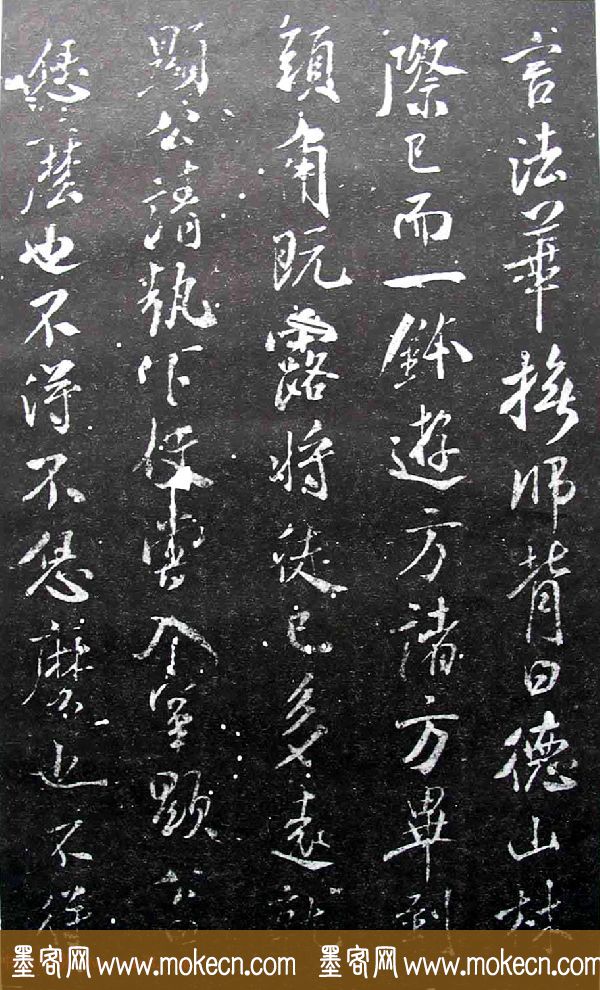 言法華撫師背曰德山林
際已而一鉢遊方諸方畢到
頭角既露將徒已多遠
顯公請執作使雲令室顯公
恁麼也不得不恁麼也不得
墨客网 www.mokecn.com 墨客网 www.mokecn.com